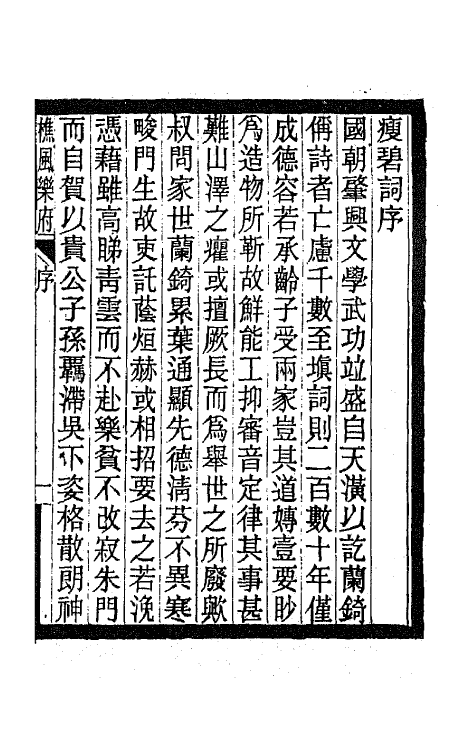 瘦碧詞序
國朝肇興文學武功竝盛自天潢以訖蘭錡
偁詩者亡慮千數至塡詞則二百數十年僅
成德容若承齡子受兩家豈其道嫥壹要眇
爲造物所靳故鮮能工抑審音定律其事甚
難山澤之癯或擅厥長而爲舉世之所廢歟
叔問家世蘭錡累葉通顯先德淸芬不異寒
畯門生故吏託蔭烜赫或相招要去之若浼
憑藉雖高睇靑雲而不赴樂貧不改寂朱門
而自賀以貴公子孫羈滯吳下姿格散朗神
樵風樂府 序 一